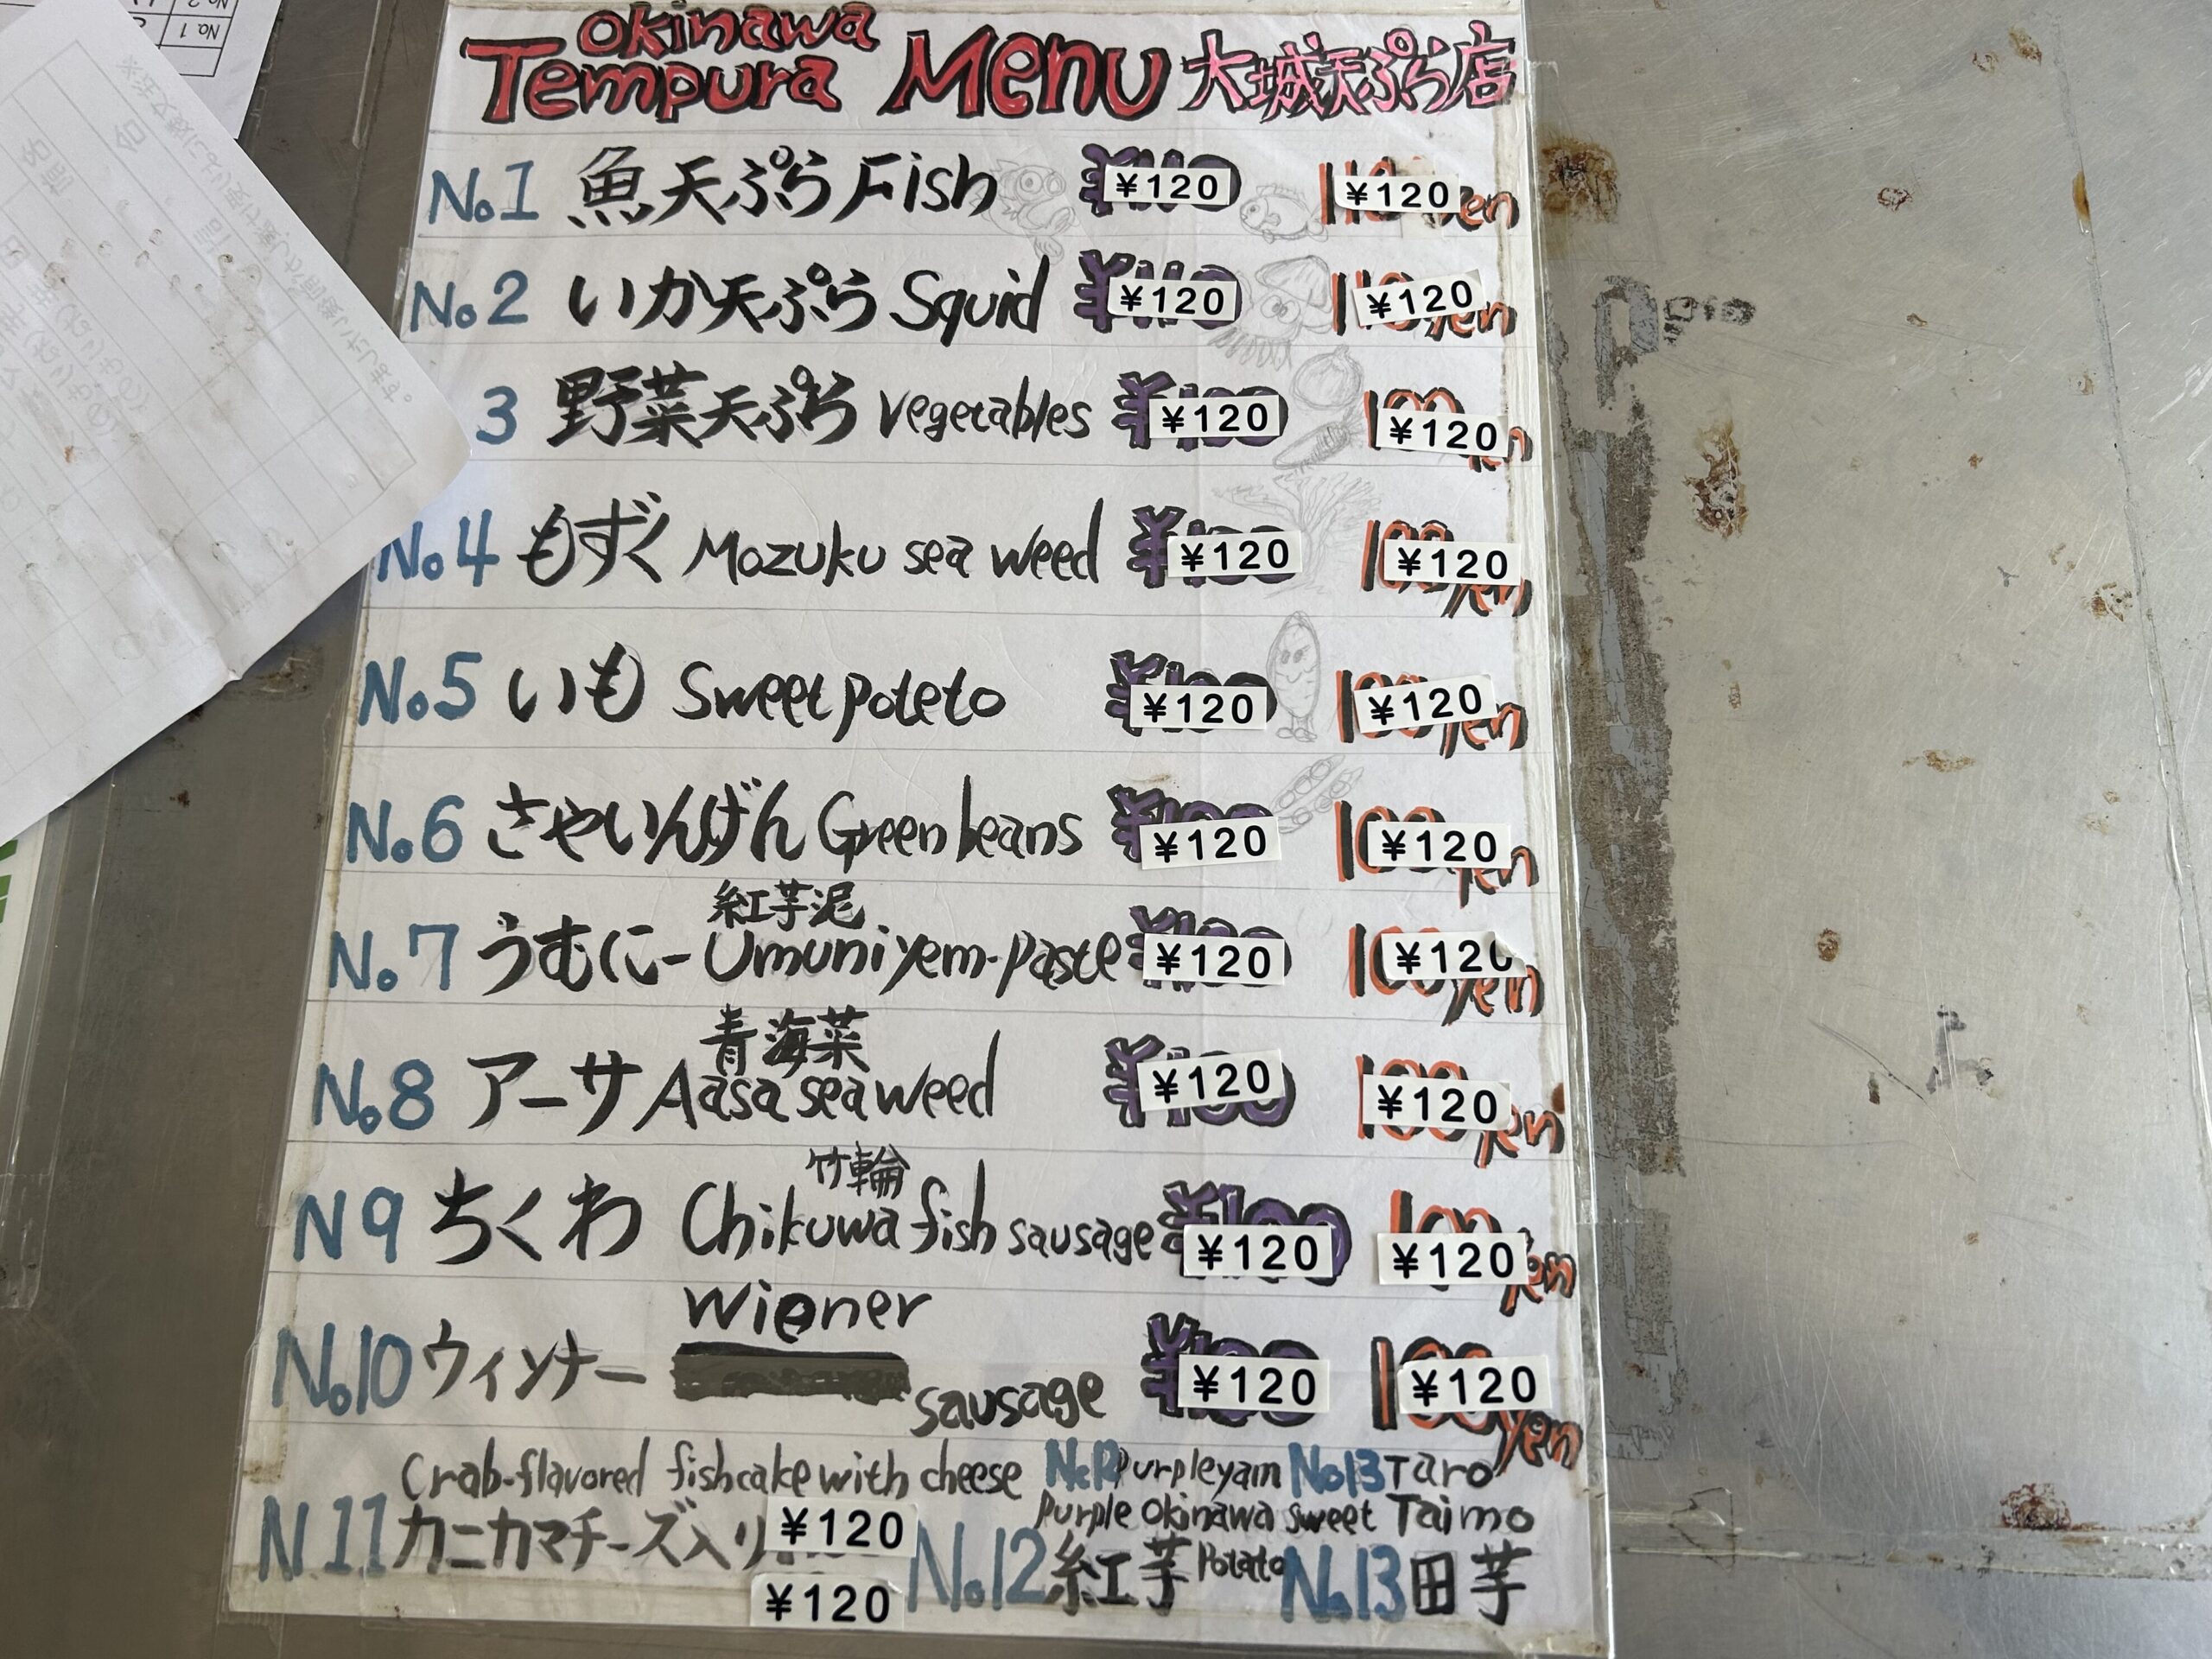 Okinawa
Tempura Menu 大城天ぷら店
No.1 魚天ぷら Fish ¥120 ¥120 yen
No.2 いか天ぷら Squid ¥120 ¥120 yen
3 野菜天ぷら vegetables ¥120 ¥120
No.4 もずく Mozuku sea weed ¥120 ¥120 yen
No.5 いも Sweet poteto ¥120 ¥120 yen
No.6 さやいんげん Green beans ¥120 ¥120 yen
紅芋泥
No.7 うむにー Umuni yem-paste ¥120 ¥120 yen
青海菜
No.8 アーサ Aasa sea weed ¥120 ¥120 yen
竹輪
N 9 ちくわ Chikuwa fish sausage ¥120 ¥120 yen
Wiener
No.10 ウィンナー sausage ¥120 ¥120 yen
Crab-flavored fishcake with cheese
N 11 カニカマチーズ入り ¥120
¥120
No.12 Purple yam
Purple Okinawa sweet
No.12 紅芋 Potato
No.13 Taro
Taimo
No.13 田芋